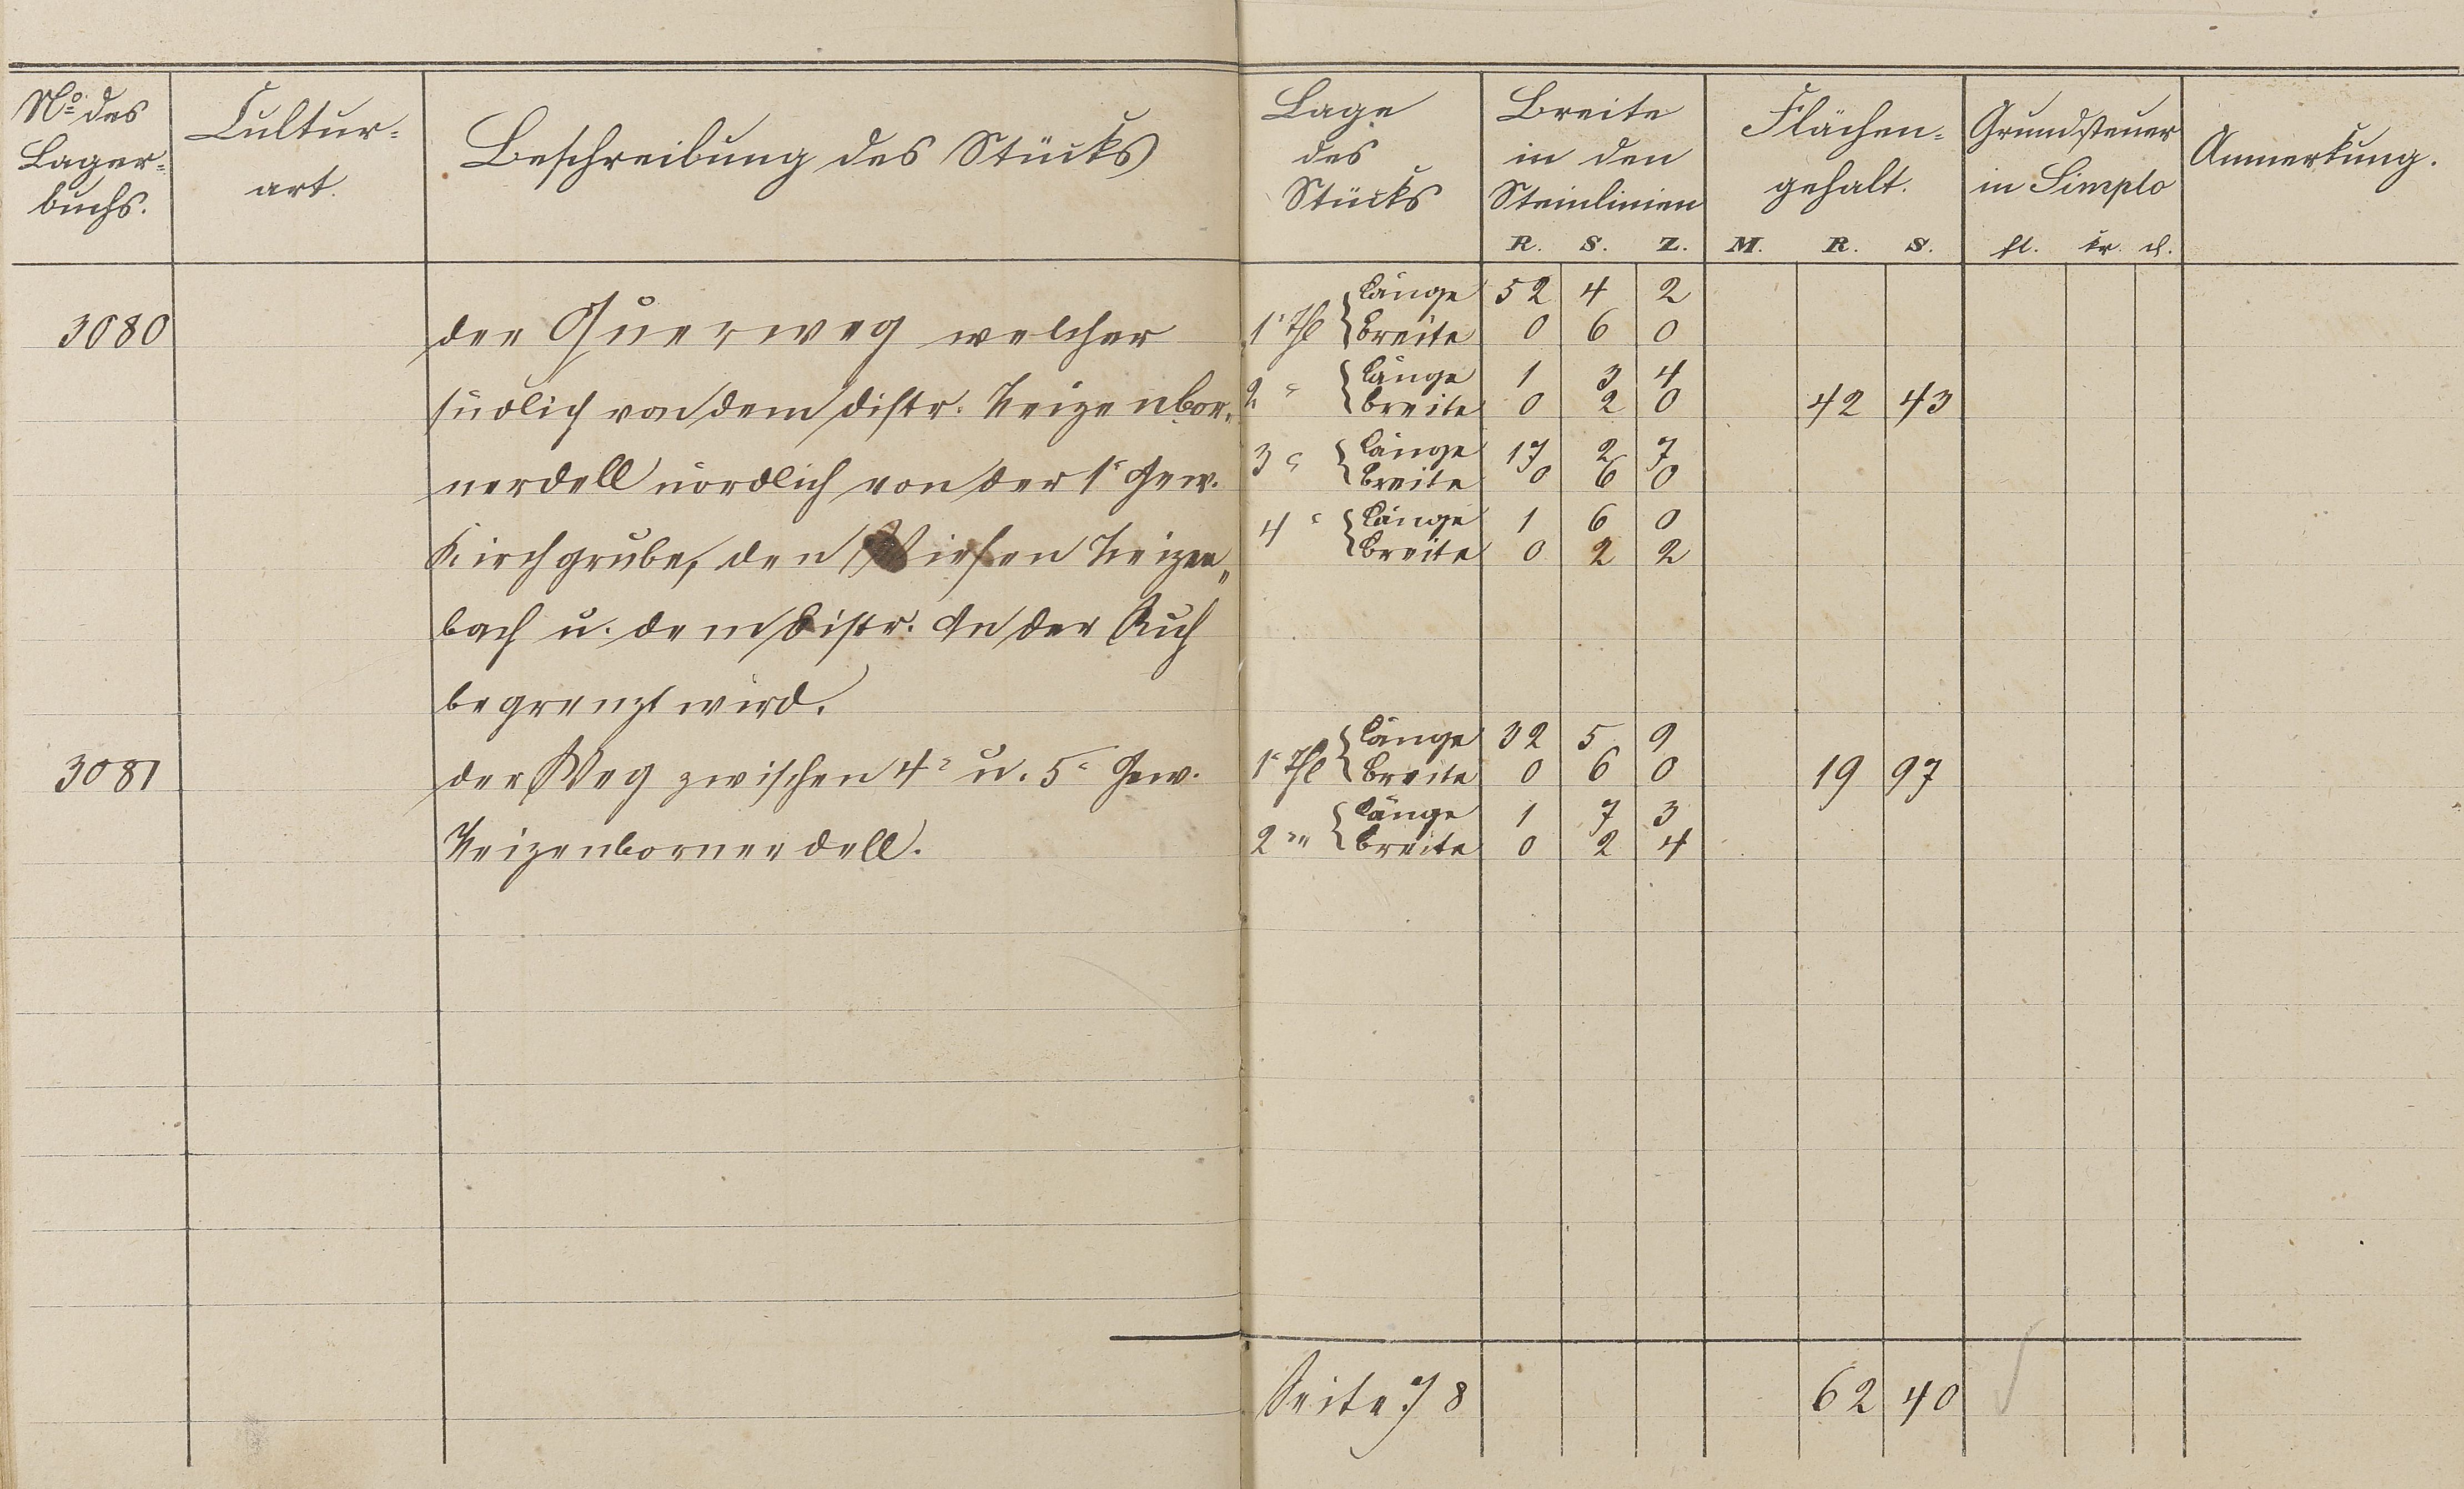 No des Lager- buchs.
Cultur- art.
Beschreibung des Stücks
Lage des Stücks
Breite in den Steinlinien
R. S. Z.
Flächen- gehalt.
M. R. S.
Grundsteuer in Simplo
fl. kr. d.
Anmerkung.
Länge 52 4 2
3080 der Querweg welcher 1r Thl Breite 0 6 0
2 " Länge 1 3 4
südlich von dem Distr. Neizenbor- Breite 0 2 0 42 43
3 " Länge 17 2 7
nerdell nördlich von der 1r Gew. Breite 0 6 0
4 " Länge 1 6 0
Kirchgrube, den Wiesen Neizen„ Breite 0 2 2
bach u. dem Distr. In der Auh
begrenzt wird.
Länge 32 5 9
3081 der Weg zwischen 4r u. 5r Gew. 1r Thl Breite 0 6 0 19 97
Länge 1 7 3
Neizenbornerdell. 2r " Breite 0 2 4
Seite 78 62 40